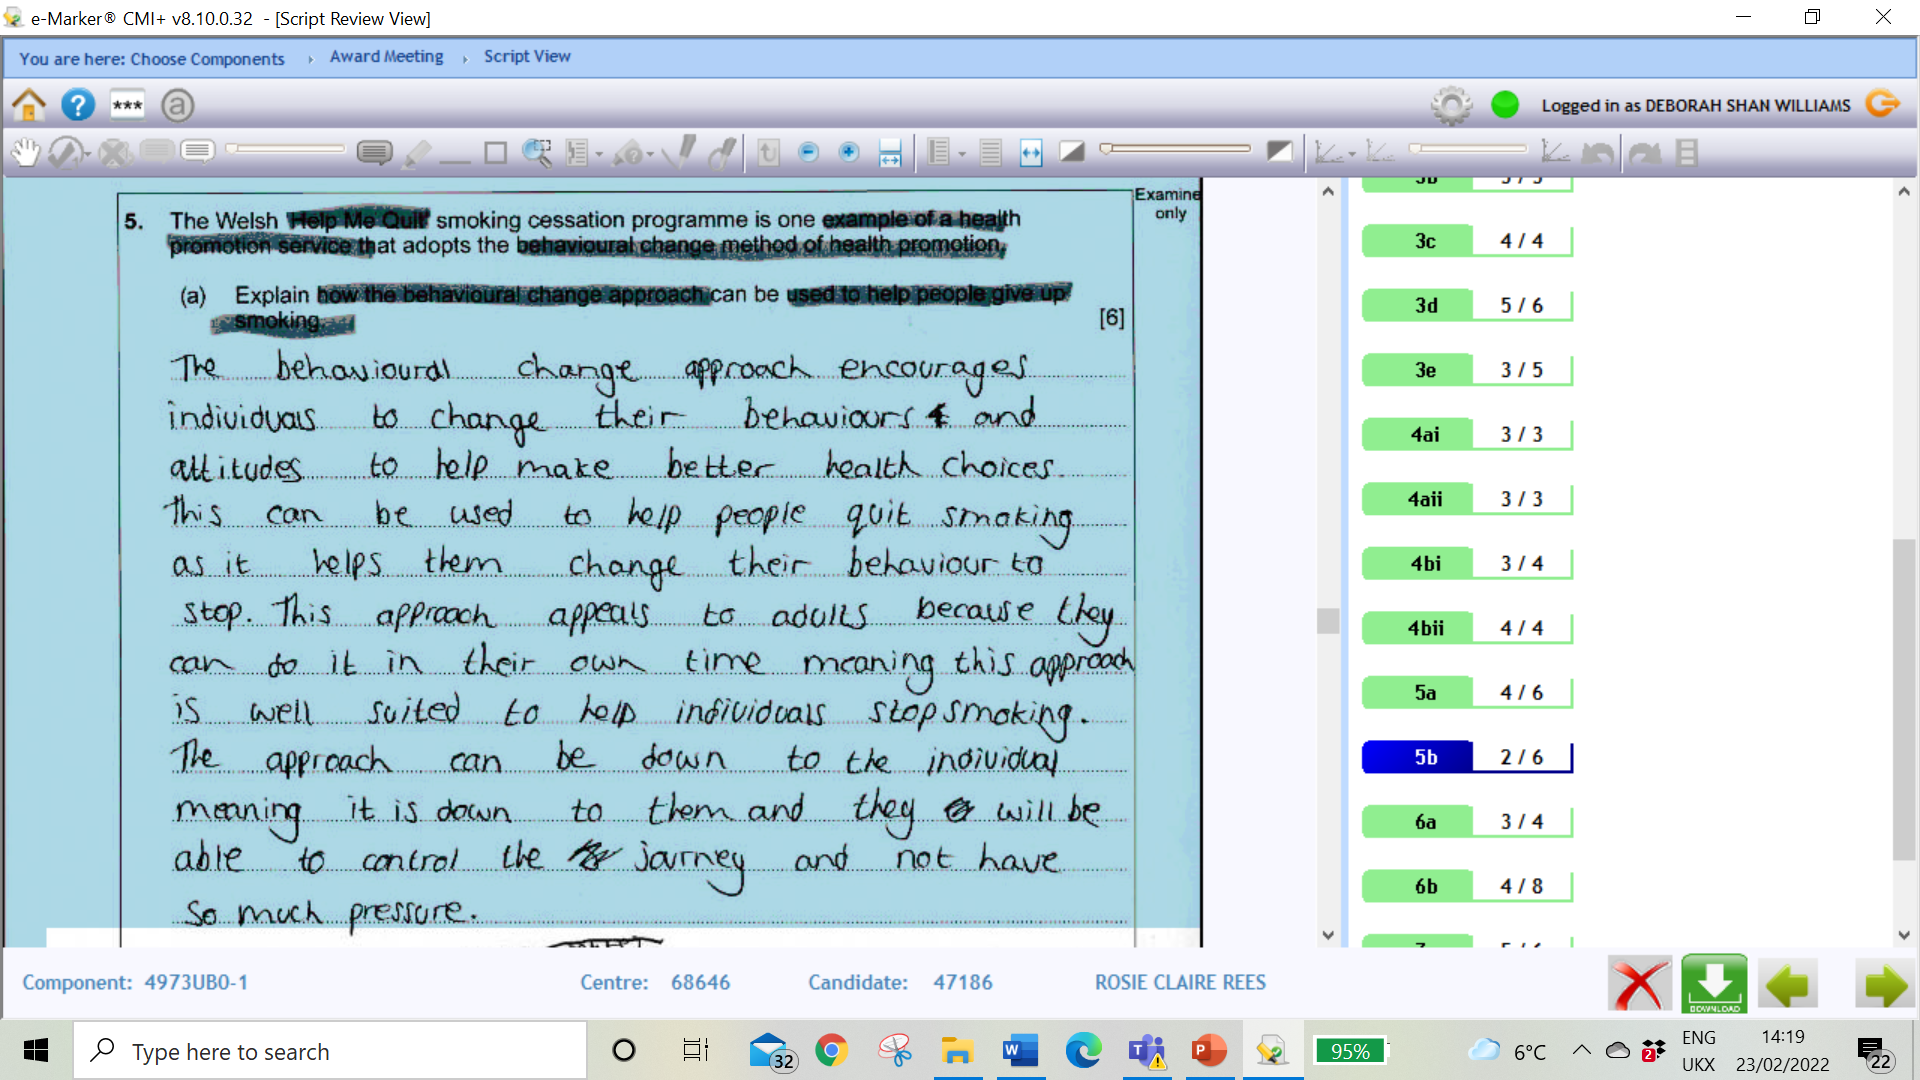 e-Marker® CMI+ v8.10.0.32 - [Script Review View]
You are here: Choose Components › Award Meeting › Script View
*** a
Logged in as DEBORAH SHAN WILLIAMS
Examine
only
5. The Welsh 'Help Me Quit' smoking cessation programme is one example of a health
promotion service that adopts the behavioural change method of health promotion.
(a) Explain how the behavioural change approach can be used to help people give up
smoking. [6]
The behavioural change approach encourages
individuals to change their behaviours and
attitudes to help make better health choices.
This can be used to help people quit smoking
as it helps them change their behaviour to
stop. This approach appeals to adults because they
can do it in their own time meaning this approach
is well suited to help individuals stop smoking.
The approach can be down to the individual
meaning it is down to them and they will be
able to control the journey and not have
so much pressure.
3b 3 / 3
3c 4 / 4
3d 5 / 6
3e 3 / 5
4ai 3 / 3
4aii 3 / 3
4bi 3 / 4
4bii 4 / 4
5a 4 / 6
5b 2 / 6
6a 3 / 4
6b 4 / 8
Component: 4973UB0-1 Centre: 68646 Candidate: 47186 ROSIE CLAIRE REES
DOWNLOAD
Type here to search
32
95%
6°C
2
ENG
UKX
14:19
23/02/2022
22